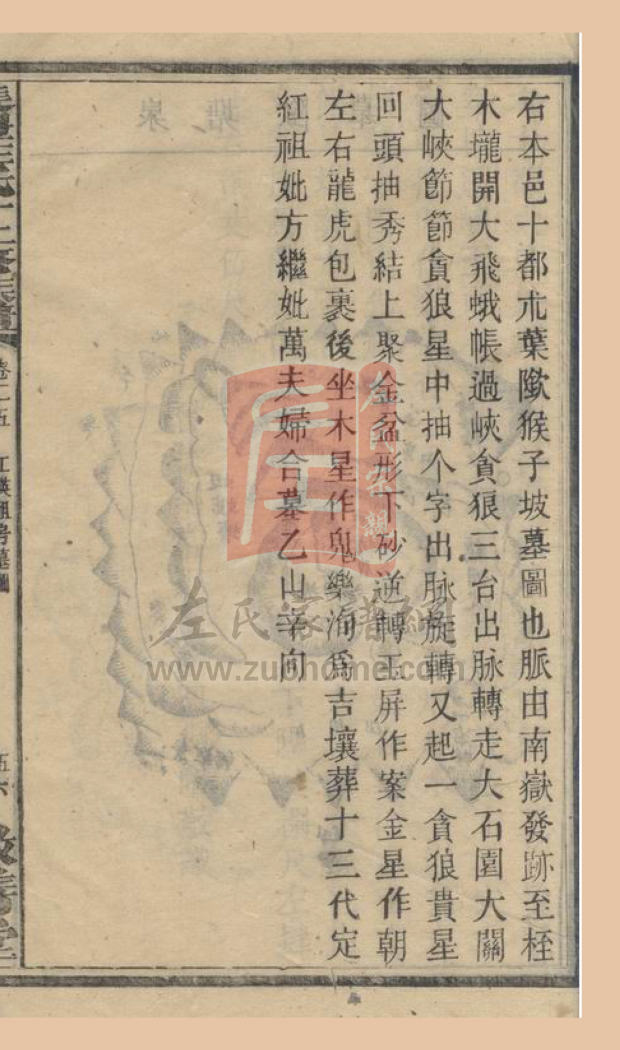 右本邑十都朮葉隞猴子坡墓圖也脈由南嶽發跡至桎
木壠開大飛蛾帳過峽貪狼三台出脉轉走大石園大關
大峽節節貪狼星中抽个字出脉旋轉又起一貪狼貴星
回頭抽秀結上聚金盆形下砂逆轉玉屏作案金星作朝
左右龍虎包裹後坐木星作鬼樂洵爲吉壤葬十三代定
紅祖妣方繼妣萬夫婦合墓乙山辛向
卷二五
五六
敘善堂
左氏家譜網
www.zuohome.com